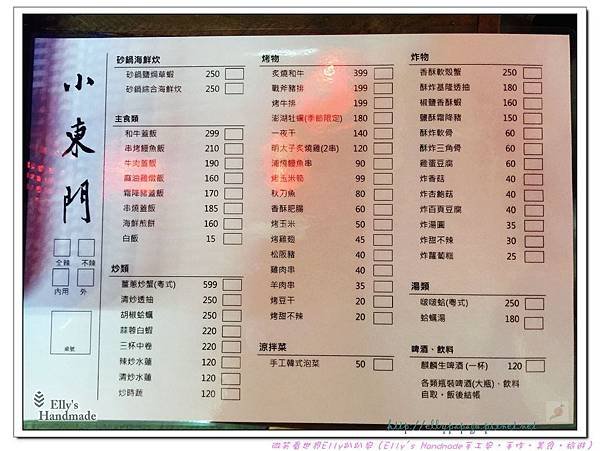 小東門
全辣 不辣
內用 外
桌號
砂鍋海鮮炊
砂鍋鹽焗草蝦 250
砂鍋綜合海鮮炊 250
主食類
和牛蓋飯 299
串烤鰻魚飯 210
牛肉蓋飯 190
麻油雞燉飯 160
霜降豬蓋飯 170
串燒蓋飯 185
海鮮煎餅 160
白飯 15
炒類
薑蔥炒蟹(粵式) 599
清炒透抽 250
胡椒蛤蠣 250
蒜蓉白蝦 220
三杯中卷 220
辣炒水蓮 120
清炒水蓮 120
炒時蔬 120
烤物
炙燒和牛 399
戰斧豬排 199
烤牛排 199
澎湖牡蠣(季節限定) 180
一夜干 140
明太子炙燒雞(2串) 120
浦燒鰻魚串 90
烤玉米筍 99
秋刀魚 80
香酥肥腸 60
烤玉米 50
烤雞翅 45
松阪豬 40
雞肉串 40
羊肉串 35
烤豆干 20
烤甜不辣 20
涼拌菜
手工韓式泡菜 50
炸物
香酥軟殼蟹 250
酥炸基隆透抽 180
椒鹽香酥蝦 160
鹽酥霜降豬 150
酥炸軟骨 60
酥炸三角骨 60
雞蛋豆腐 60
炸香菇 40
炸杏鮑菇 40
炸百頁豆腐 40
炸湯圓 35
炸甜不辣 30
炸蘿蔔糕 25
湯類
啵啵蛤(粵式) 250
蛤蠣湯 180
啤酒、飲料
麒麟生啤酒(一杯) 120
各類瓶裝啤酒(大瓶)、飲料
自取，飯後結帳
Elly's
Handmade